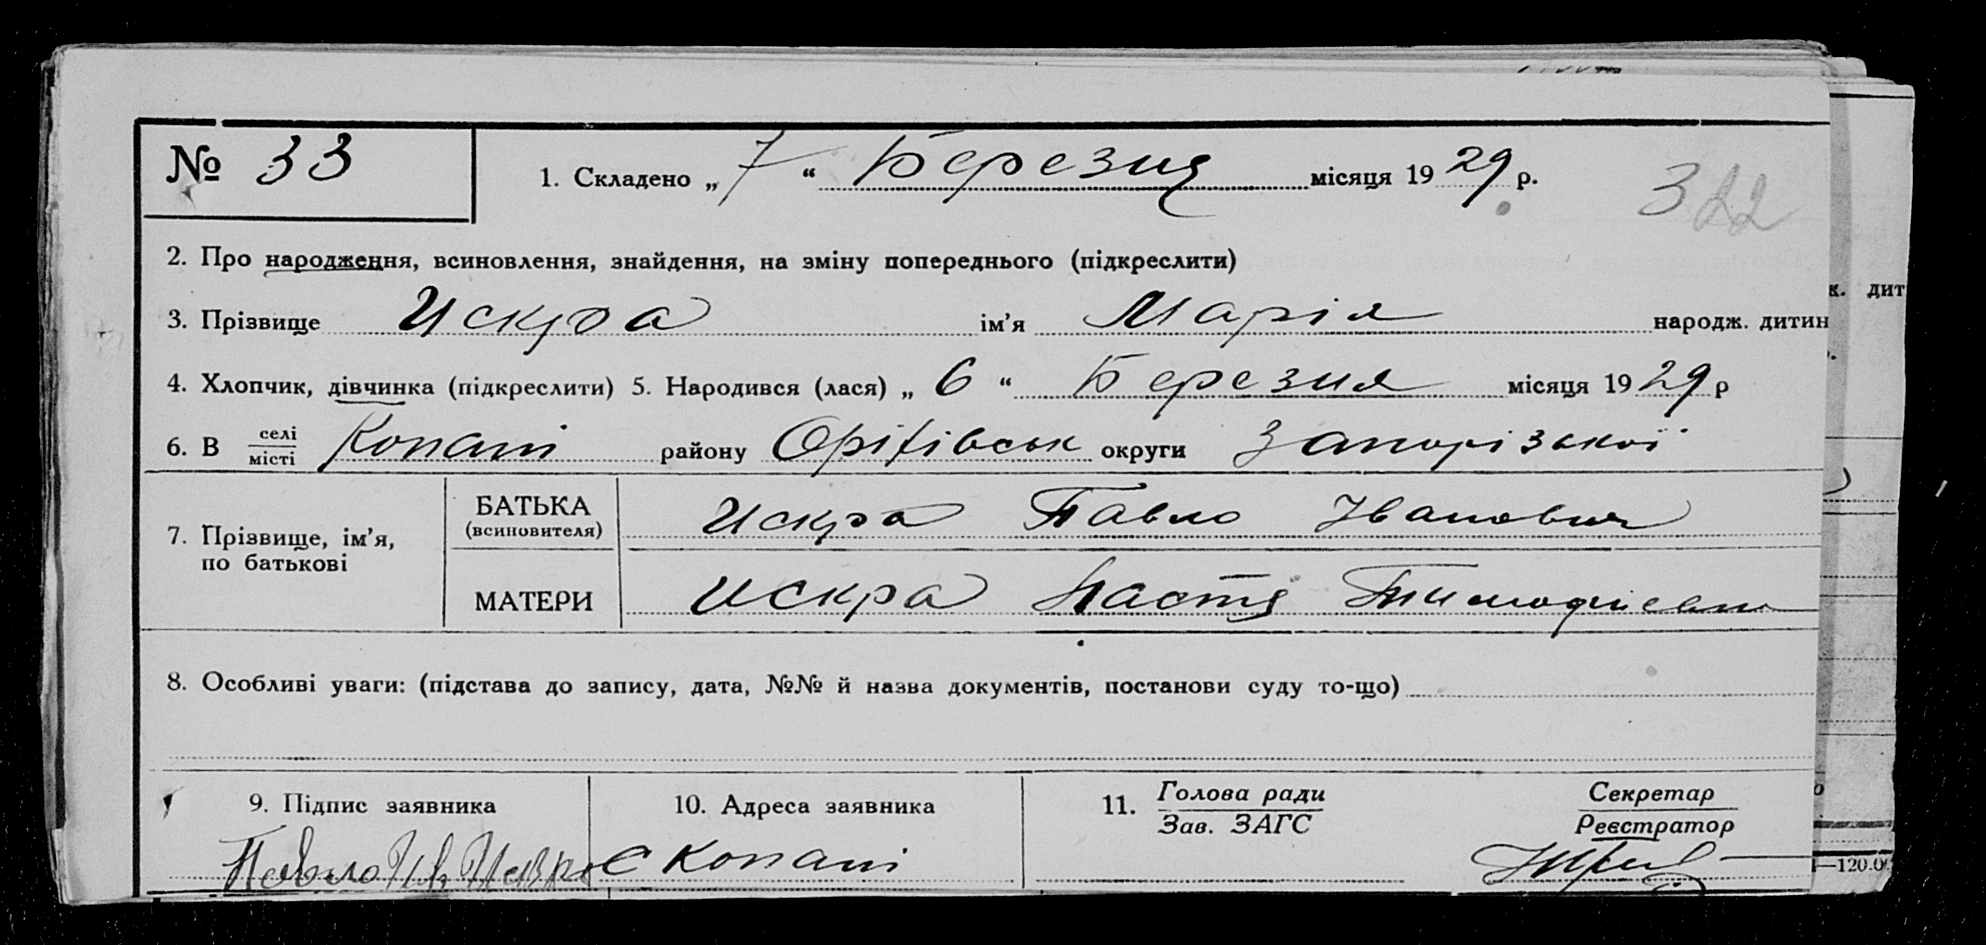 № 33
1. Складено „ 7 “ Березня місяця 1929 р.
322
2. Про народження, всиновлення, знайдення, на зміну попереднього (підкреслити)
3. Прізвище Искра ім’я Марія народж. дитин
к. дит
4. Хлопчик, дівчинка (підкреслити) 5. Народився (лася) „ 6 “ Березня місяця 1929 р
6. В селі місті Копані району Оріхівськ округи Запорізької
7. Прізвище, ім’я, по батькові
БАТЬКА (всиновителя) Искра Павло Іванович
МАТЕРИ Искра Настя
8. Особливі уваги: (підстава до запису, дата, №№ й назва документів, постанови суду то-що)
9. Підпис заявника
10. Адреса заявника
11. Голова ради
Зав. ЗАГС
Секретар
Реєстратор
с Копані
—120.0